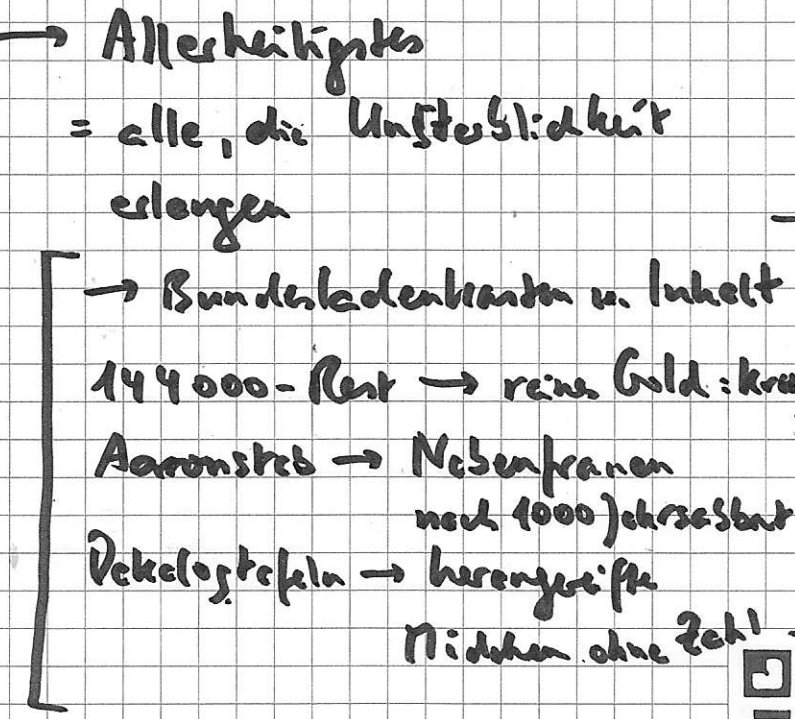 → Allerheiligstes
= alle, die Unsterblichkeit
erlangen
→ Bundesladenkasten u. Inhalt
144000-Rest → reines Gold:
Aaronstab → Nebenfrauen
nach 1000 Jahrsabbat
Dekalogtafeln → herangereifte
Mädchen ohne Zahl